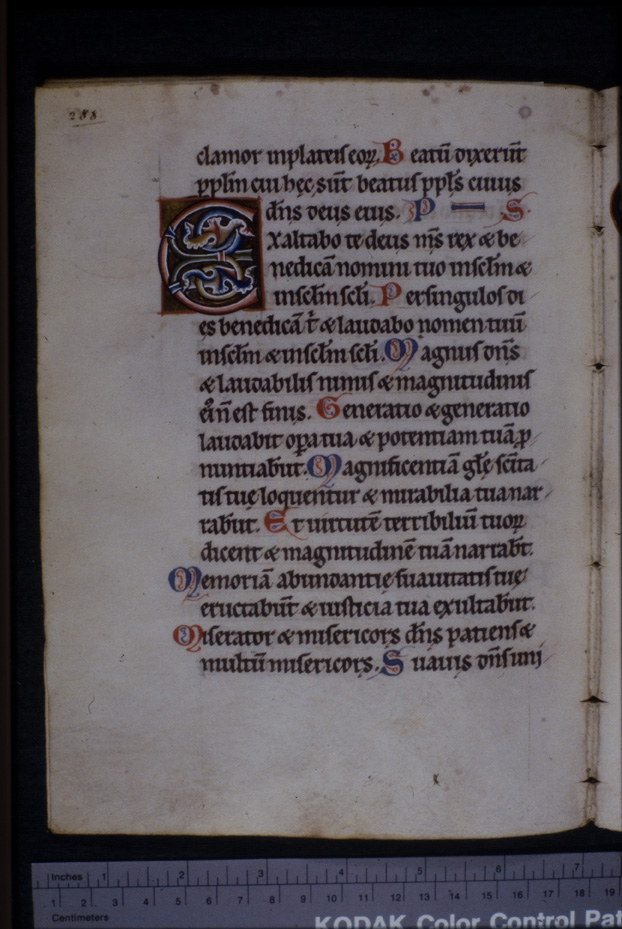 288
clamor inplateis eoꝝ. Beatū dixerūt
pplm̄ cui hęc sūt beatus ppl̄s cuius
dn̄s deus eius. P — S
Exaltabo te deus m̄s rex & be
nedicā nomini tuo inseclm̄ &
inseclm̄ scli. Per singulos di
es benedicā t̄ & laudabo nomen tuū
inseclm̄ & inseclm̄ scli. Magnus dn̄s
& laudabilis nimis & magnitudinis
ei n̄ est finis. Generatio & generatio
laudabit opa tua & potentiam tuā ꝓ
nuntiab̄ut. Magnificentiā glę sc̄ita
tis tuę loquentur & mirabilia tua nar
rab̄ut. Et uirtutē terribiliū tuoꝝ
dicent & magnitudinē tuā narrab̄t.
Memoriā abundantię suauitatis tuę
eructab̄ūt & iusticia tua exultab̄ut.
Miserator & misericors dn̄s patiens &
multū misericors. Suauis dn̄s uni
Inches 1 2 3 4 5 6 7
1 2 3 4 5 6 7 8 9 10 11 12 13 14 15 16 17 18 19
Centimeters
KODAK Color Control Pat